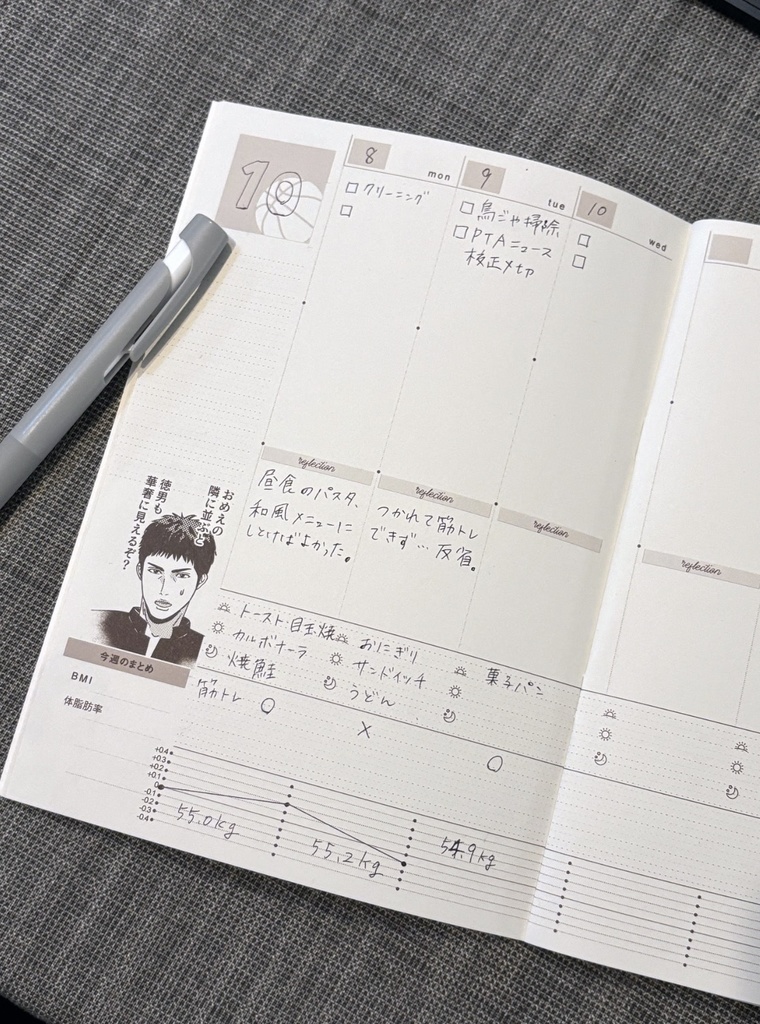 10
8
mon
クリーニング
9
tue
鳥ごや掃除
PTAニュース
校正〆切
10
wed
おめえの
隣に並ぶと
徳男も
華奢に見えるぞ?
reflection
昼食のパスタ、
和風メニューに
しとけばよかった。
reflection
つかれて筋トレ
できず… 反省。
reflection
reflection
今週のまとめ
BMI
体脂肪率
トースト・目玉焼
カルボナーラ
焼鮭
おにぎり
サンドイッチ
うどん
菓子パン
筋トレ
○
×
○
+0.4
+0.3
+0.2
+0.1
0
-0.1
-0.2
-0.3
-0.4
55.0kg
55.2kg
54.9kg